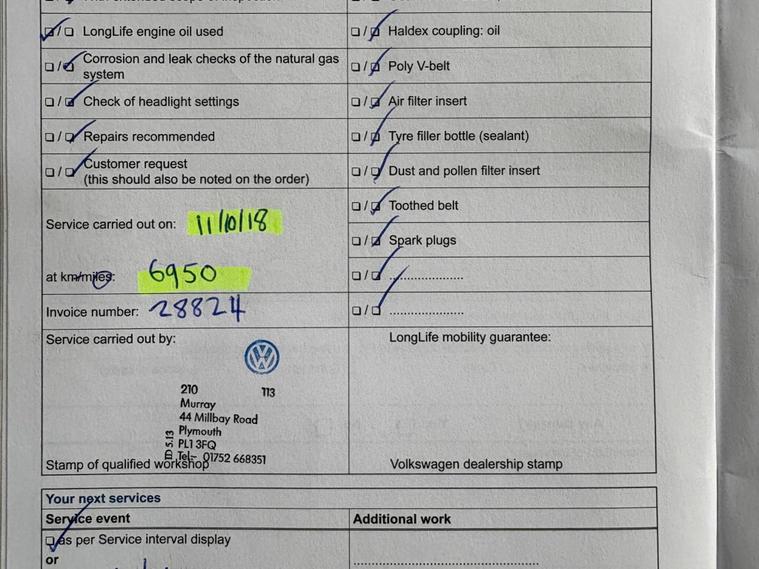 LongLife engine oil used
Haldex coupling: oil
Corrosion and leak checks of the natural gas
system
Poly V-belt
Check of headlight settings
Air filter insert
Repairs recommended
Tyre filler bottle (sealant)
Customer request
(this should also be noted on the order)
Dust and pollen filter insert
Toothed belt
Service carried out on: 11/10/18
Spark plugs
at km/miles: 6950
....................
Invoice number: 28824
....................
Service carried out by:
LongLife mobility guarantee:
210 113
Murray
44 Millbay Road
Plymouth
PL1 3FQ
Tel:- 01752 668351
ID 5.13
Stamp of qualified workshop
Volkswagen dealership stamp
Your next services
Service event
Additional work
as per Service interval display
or